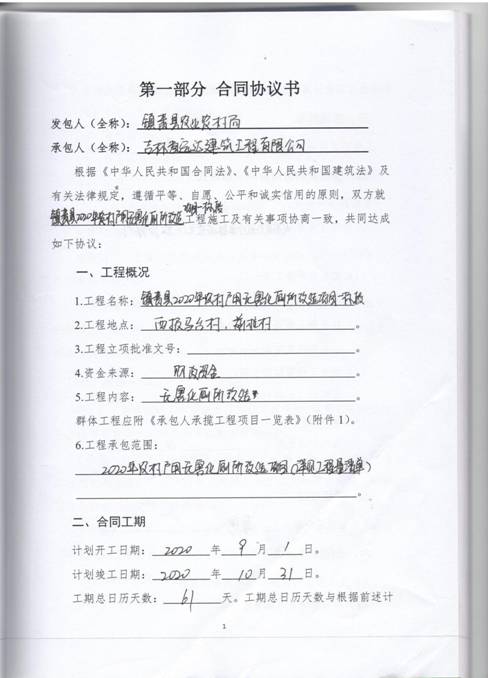 第一部分 合同协议书
发包人（全称）：镇赉县农业农村局
承包人（全称）：吉林 宏达建筑工程有限公司
根据《中华人民共和国合同法》、《中华人民共和国建筑法》及
有关法律规定，遵循平等、自愿、公平和诚实信用的原则，双方就
镇赉县2020年农村户用无害化厕所改造项目一标段工程施工及有关事项协商一致，共同达成
如下协议：
一、工程概况
1.工程名称：镇赉县2020年农村户用无害化厕所改造项目一标段
2.工程地点： 马台村， 村 。
3.工程立项批准文号： 。
4.资金来源：财政资金 。
5.工程内容：无害化厕所改造 。
群体工程应附《承包人承揽工程项目一览表》（附件1）。
6.工程承包范围：
2020年农村户用无害化厕所改造项目（详见工程量清单）
。
二、合同工期
计划开工日期：2020 年 9 月 1 日。
计划竣工日期：2020 年 10 月 31 日。
工期总日历天数：61 天。工期总日历天数与根据前述计
1